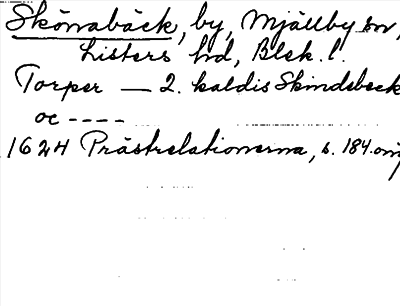 Skönabäck, by, Mjällby sn,
Listers hd, Blek. l.
Torper — 2. kaldis Skindsbeck
oc ----
1624 Prästrelationerna, s. 184. omf